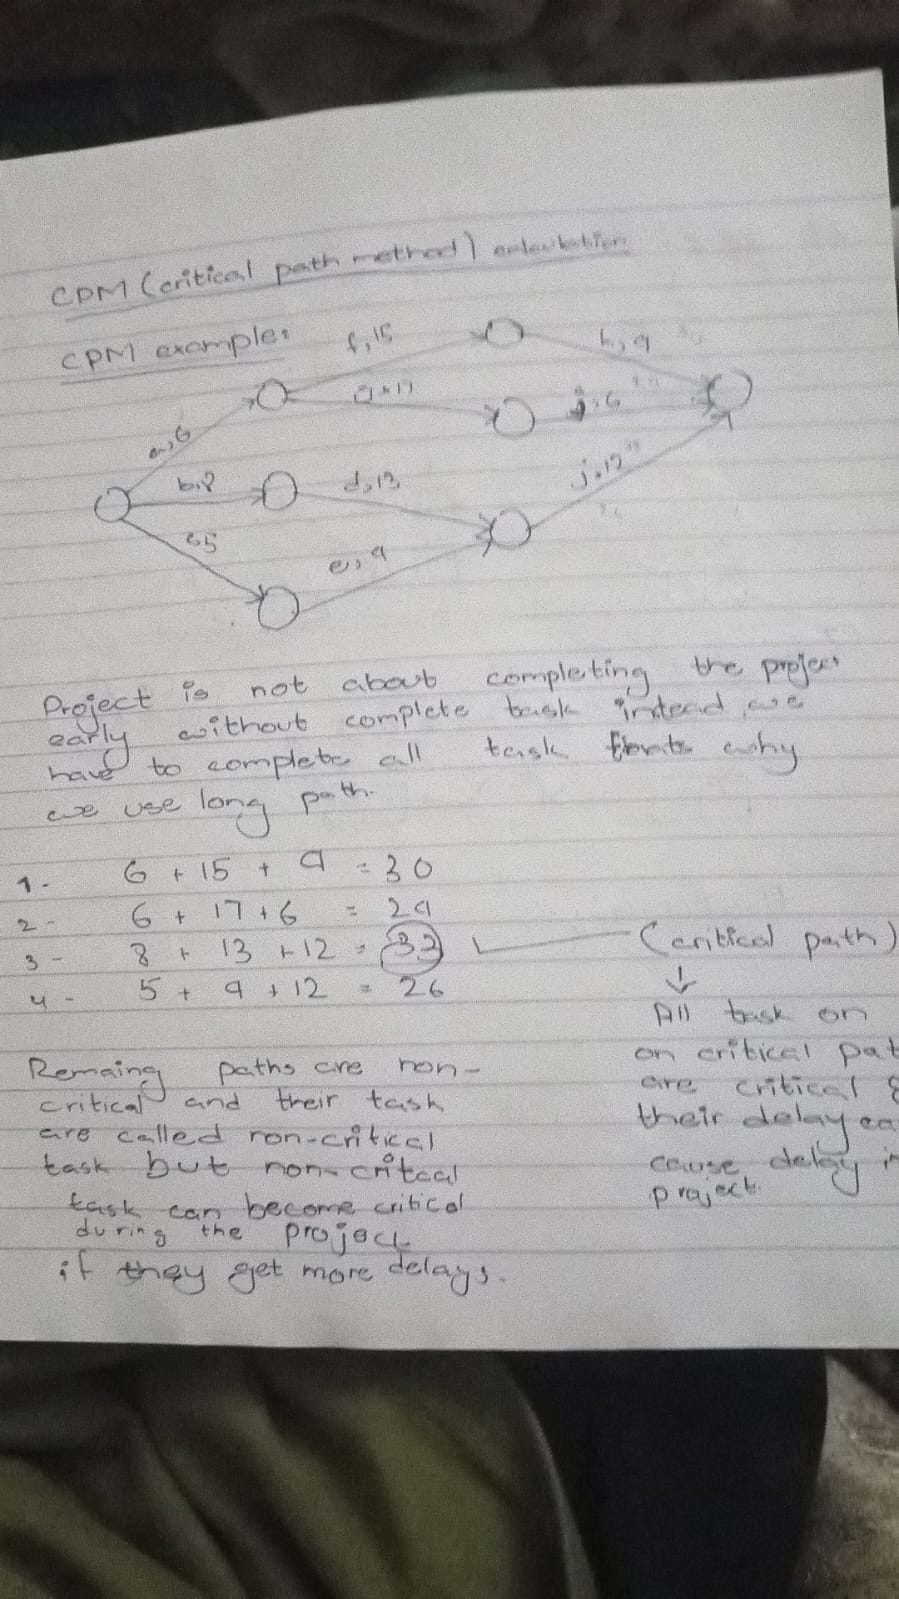 CPM (critical path method) calculation
CPM example:
f,15
h,9
a,6
j,6
b,8
d,13
j,12
c5
e,9
Project is not about completing the project
early without complete task instead we
have to complete all task why
we use long path.
1- 6 + 15 + 9 = 30
2- 6 + 17 + 6 = 29
3- 8 + 13 + 12 = 33 (critical path)
4- 5 + 9 + 12 = 26
All task on
on critical pat
are critical &
their delay ca
cause delay in
project.
Remaing paths are non-
critical and their task
are called non-critical
task but non-critcal
task can become critical
during the project
if they get more delays.